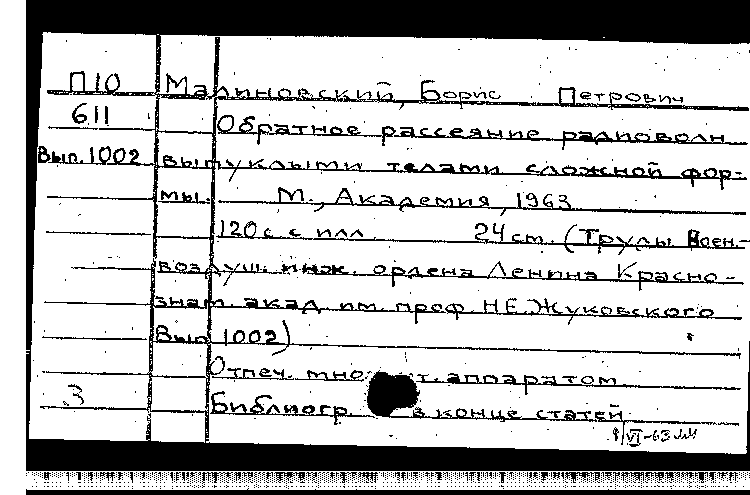 П10 Малиновский, Борис Петрович
611 Обратное рассеяние радиоволн
Вып. 1002 выпуклыми телами сложной фор-
мы. М., Академия, 1963
120 с. с илл. 24 см. (Труды Воен.-
воздуш. инж. ордена Ленина Красно-
знам. акад. им. проф. Н.Е. Жуковского
Вып. 1002)
Отпеч. аппаратом
3 Библиогр. в конце статей
VI-63